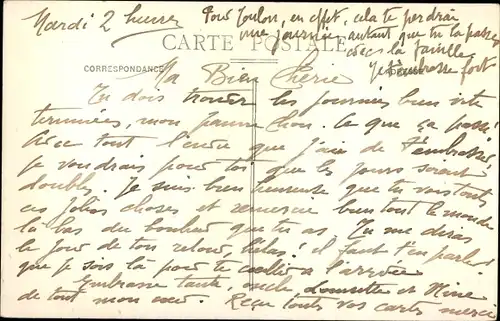 Mardi 2 heures
Pour Toulon, en effet, cela te perdrai
une journée, autant que tu la passes
avec la famille
Je t'embrasse fort
CARTE POSTALE
CORRESPONDANCE
Ma Bien Chérie
Tu dois trouver les journées bien vite
terminées, mon pauvre chou. Ce que ça passe!
Avec tout l'envie que j'ai de t'embrasser
je voudrais pour toi que les jours soient
doubles. Je suis bien heureuse que tu vois toutes
ces jolies choses et remercie bien tout le monde
là bas du bonheur que tu as. Tu me diras
le jour de ton retour, hélas! il faut t'en parler!
que je sois là pour te cueillir à l'arrivée
Embrasse tante, oncle, et Mime
de tout mon cœur. Reçu toutes vos cartes merci